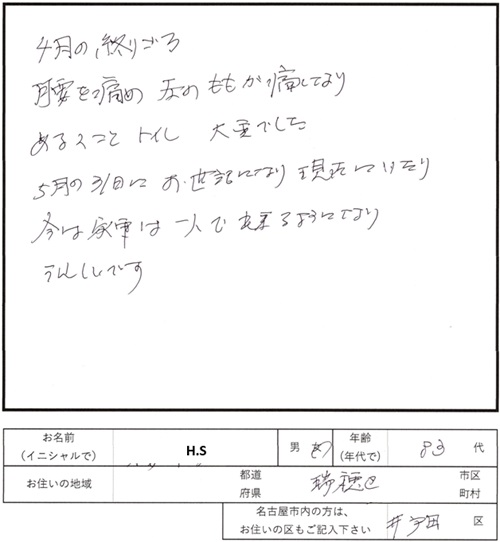 4月の終りごろ
腰を痛め 左のももが痛くなり
あるくこと トイレ 大変でした
5月の31日にお世話になり 現在にいたり
今は家事は一人で出来るようになり
うれしいです
お名前
(イニシャルで) H.S 男 女 年齢
(年代で) 83 代
お住いの地域 都道
府県 瑞穂区 市区
町村
名古屋市内の方は、
お住いの区もご記入下さい 区